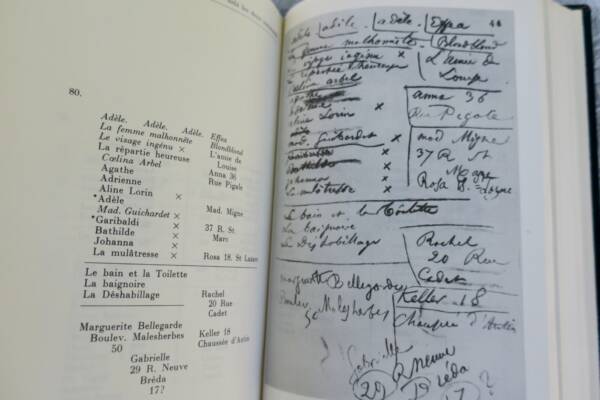 80.
Adèle. Adèle. Adèle. Effea
La femme malhonnête Blondblond
Le visage ingénu × L'amie de
La répartie heureuse Louise
Cœlina Arbel Anna 36
Agathe Rue Pigale
Adrienne
Aline Lorin ×
*Adèle
Mad. Guichardet × Mad. Migne
*Garibaldi × 37 R. St.
Bathilde × Marc
Johanna ×
La mulâtresse × Rosa 18. St Lazare
Le bain et la Toilette
La baignoire
La Déshabillage Rachel
20 Rue
Cadet
Marguerite Bellegarde
Boulev. Malesherbes Keller 18
50 Chaussée d'Antin
Gabrielle
29 R. Neuve
Bréda
17?
44
Adèle. Effea
La femme malhonnête Blondblond
Le visage ingénu × L'amie de
La répartie heureuse Louise
Anna 36
Rue Pigale
Aline Lorin ×
Mad. Guichardet × Mad Migne
37 R St
Johanna ×
La mulâtresse × Rosa
Le bain et la Toilette
La baignoire
La Déshabillage
Rachel
20 Rue
Cadet
Marguerite Bellegarde
Boulev Malesherbes
50
Keller 18
Chaussée d'Antin
Gabrielle
29 R Neuve
Bréda
17 ?